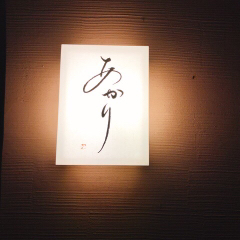 あかり